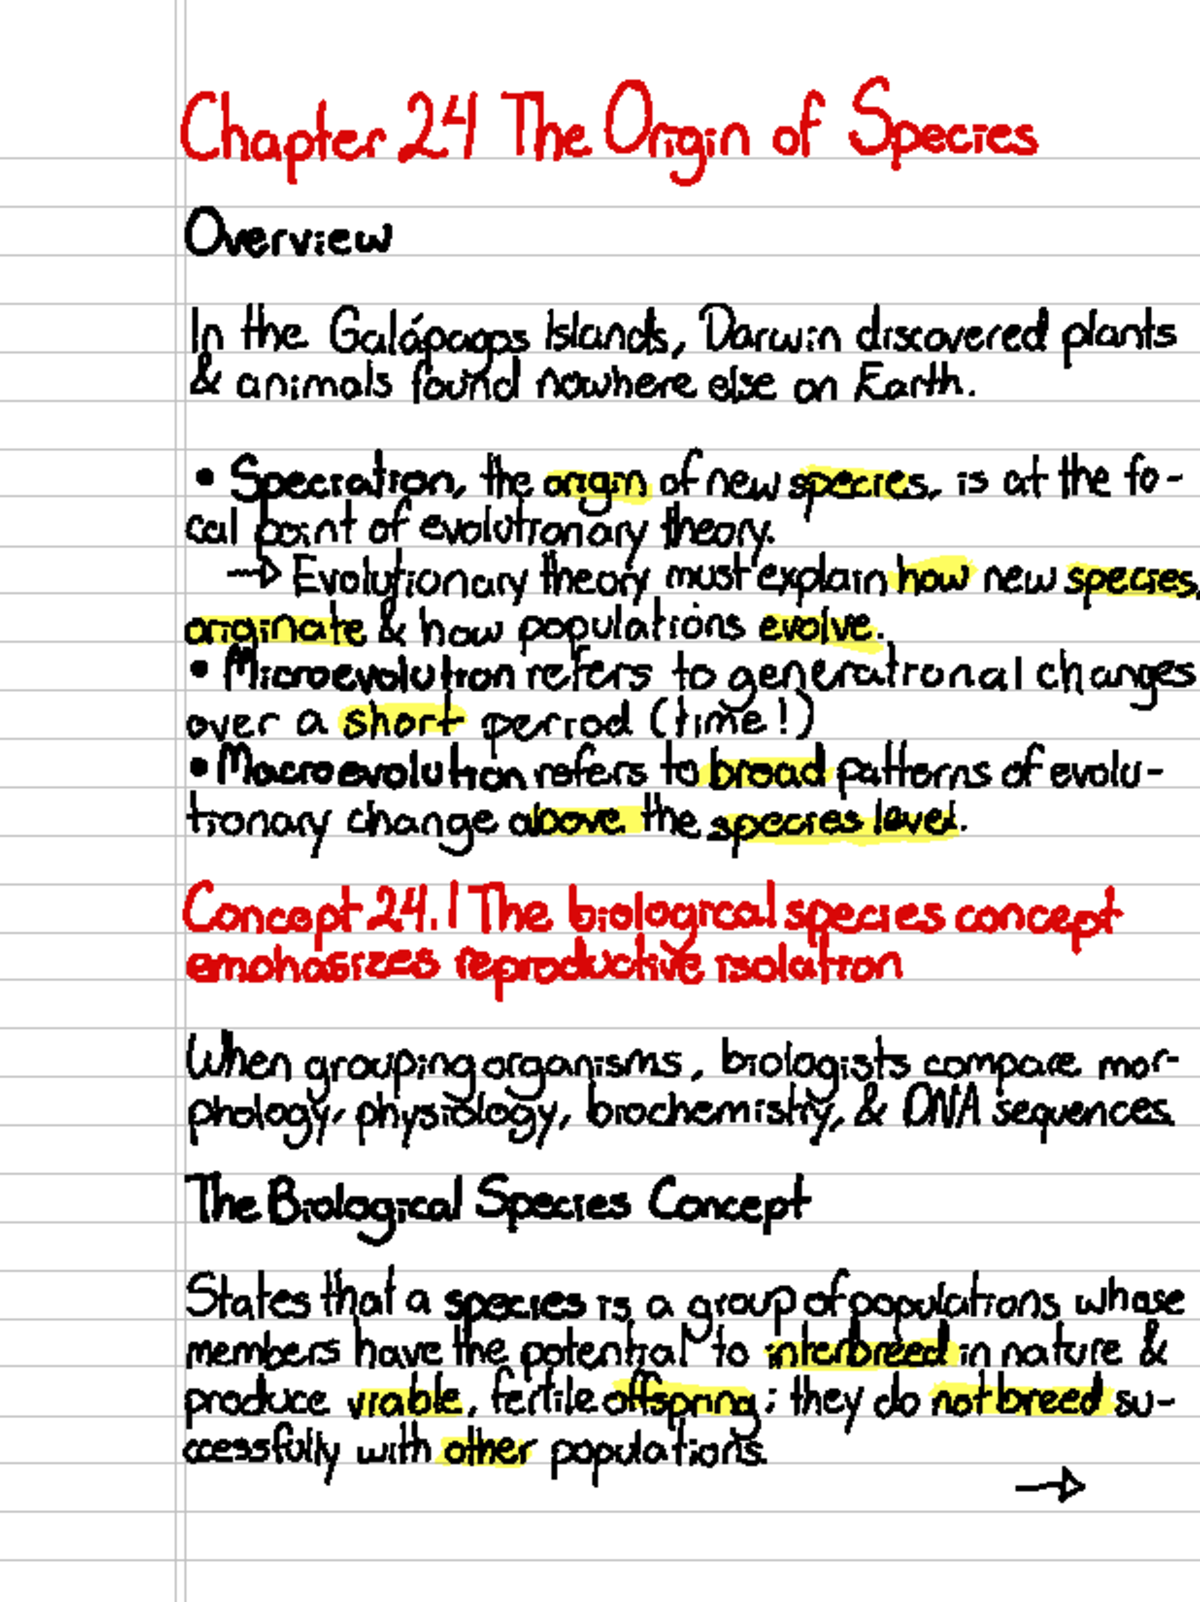 Chapter 24 The Origin of Species
Overview
In the Galápagos Islands, Darwin discovered plants
& animals found nowhere else on Earth.
• Speciation, the origin of new species, is at the fo-
cal point of evolutionary theory.
→ Evolutionary theory must explain how new species
originate & how populations evolve.
• Microevolution refers to generational changes
over a short period (time!)
• Macroevolution refers to broad patterns of evolu-
tionary change above the species level.
Concept 24.1 The biological species concept
emphasizes reproductive isolation
When grouping organisms, biologists compare mor-
phology, physiology, biochemistry, & DNA sequences.
The Biological Species Concept
States that a species is a group of populations whose
members have the potential to interbreed in nature &
produce viable, fertile offspring; they do not breed su-
ccessfully with other populations.
→